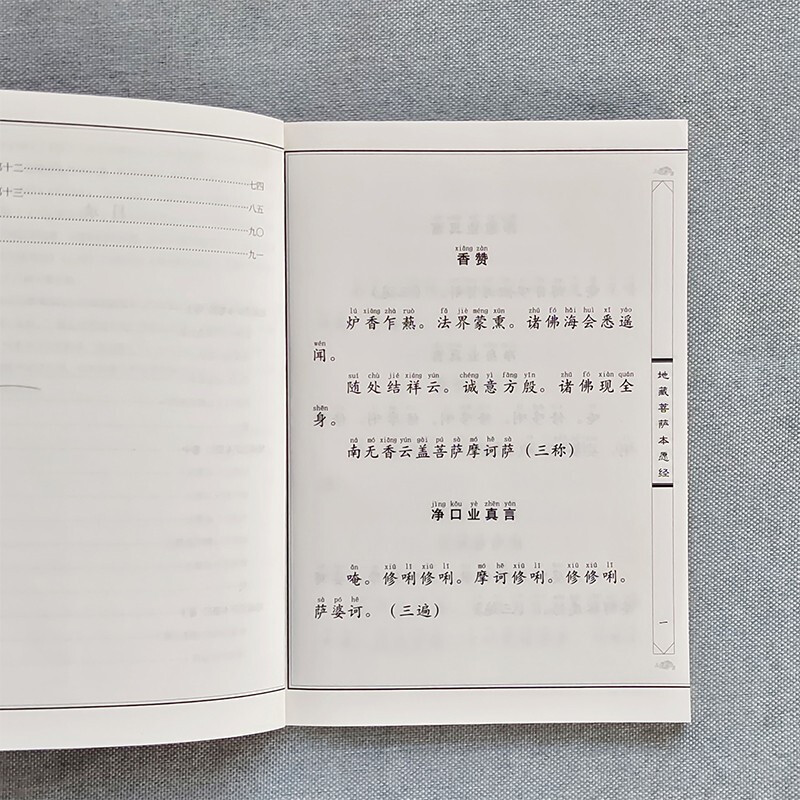 第十二……七四
第十三……八五
……九〇
……九一
xiāng zàn
香赞
lú xiāng zhà ruò fǎ jiè méng xūn zhū fó hǎi huì xī yáo
炉香乍爇。法界蒙熏。诸佛海会悉遥
wén
闻。
suí chù jié xiáng yún chéng yì fāng yīn zhū fó xiàn quán
随处结祥云。诚意方殷。诸佛现全
shēn
身。
ná mó xiāng yún gài pú sà mó hē sà
南无香云盖菩萨摩诃萨（三称）
jìng kǒu yè zhēn yán
净口业真言
ǎn xiū lī xiū lī mó hē xiū lī xiū xiū lī
唵。修唎修唎。摩诃修唎。修修唎。
sà pó hē
萨婆诃。（三遍）
地藏菩萨本愿经
一